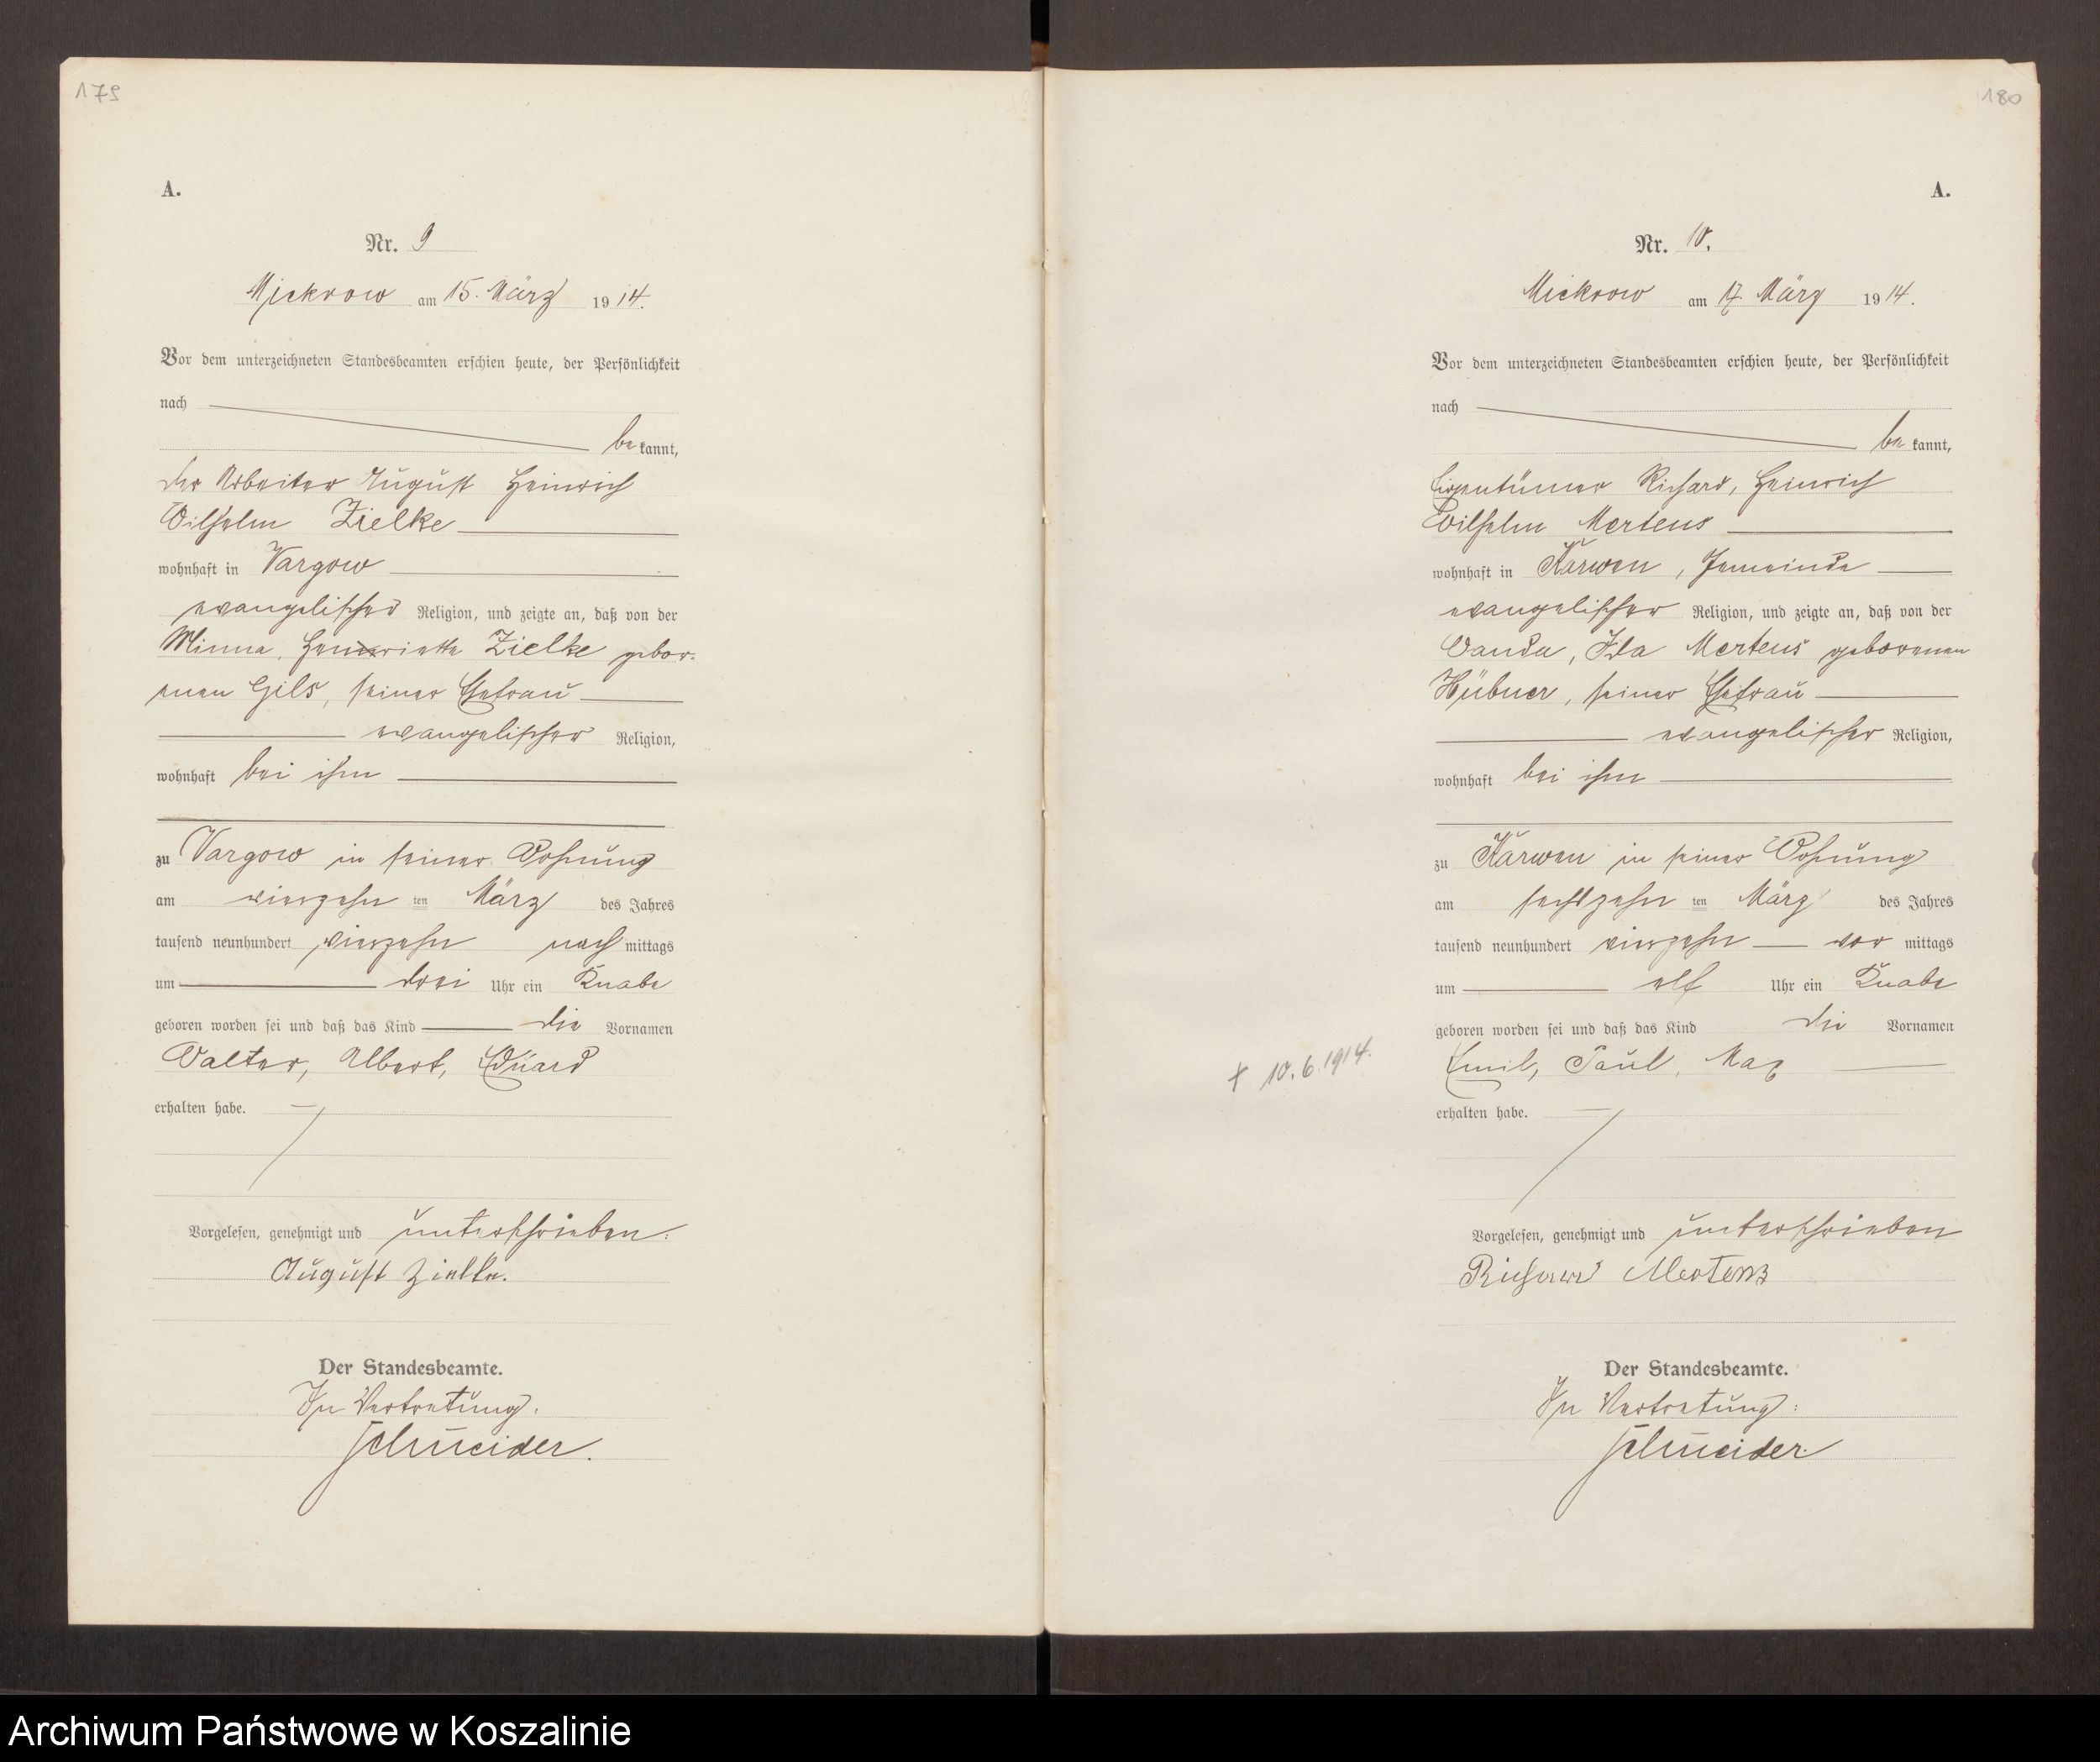 179
A.
Nr. 9
Mickrow am 15. März 1914.
Vor dem unterzeichneten Standesbeamten erschien heute, der Persönlichkeit
nach
bekannt,
der Arbeiter August Heinrich
Wilhelm Zielke
wohnhaft in Vargow
evangelischer Religion, und zeigte an, daß von der
Minna, Henriette Zielke gebor-
enen Gils, seiner Ehefrau
evangelischer Religion,
wohnhaft bei ihm
zu Vargow in seiner Wohnung
am vierzehn ten März des Jahres
tausend neunhundert vierzehn nach mittags
um drei Uhr ein Knabe
geboren worden sei und daß das Kind die Vornamen
Walter, Albert, Eduard
erhalten habe.
Vorgelesen, genehmigt und unterschrieben.
August Zielke.
Der Standesbeamte.
In Vertretung.
Schneider.
180
A.
Nr. 10.
Mickrow am 17. März 1914.
Vor dem unterzeichneten Standesbeamten erschien heute, der Persönlichkeit
nach
bekannt,
Eigentümer Richard, Heinrich
Wilhelm Mertens
wohnhaft in Karwen, Gemeinde
evangelischer Religion, und zeigte an, daß von der
Wanda, Ida Mertens geborenen
Hübner, seiner Ehefrau
evangelischer Religion,
wohnhaft bei ihm
zu Karwen in seiner Wohnung
am sechszehn ten März des Jahres
tausend neunhundert vierzehn vor mittags
um elf Uhr ein Knabe
geboren worden sei und daß das Kind die Vornamen
† 10.6.1914.
Emil, Paul, Max
erhalten habe.
Vorgelesen, genehmigt und unterschrieben
Richard Mertens
Der Standesbeamte.
In Vertretung:
Schneider.
Archiwum Państwowe w Koszalinie